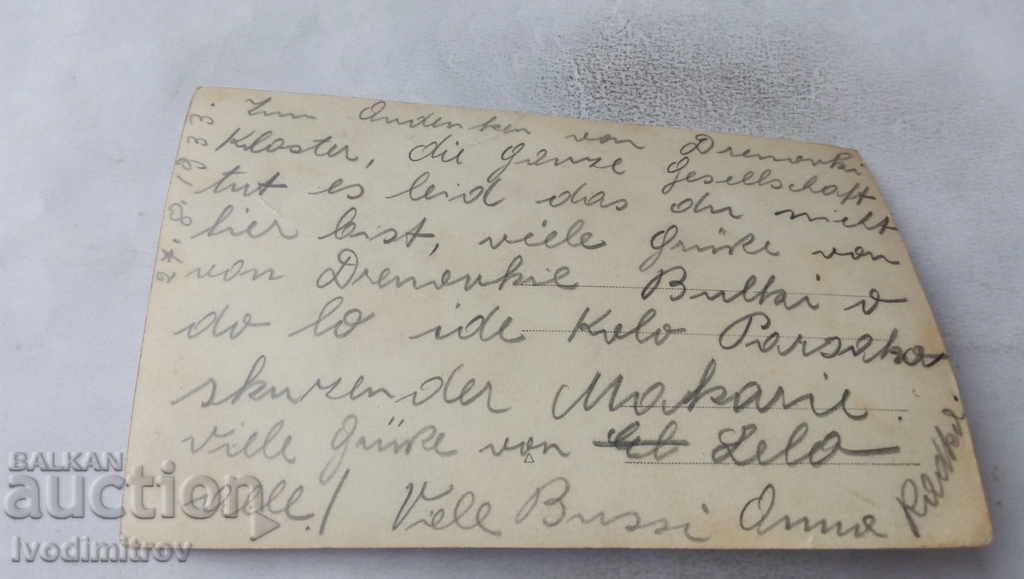 27. 8. 1933.
Zum Andenken von Drenovki
Kloster, die ganze Gesellschaft
tut es leid das du nicht
hier bist, viele Grüße von
von Drenovkil Bulki o
do lo ide Kolo Parsaka
skuzender Makarie.
Viele Grüße von Lelo
Viele Bussi Anna
Radka.
BALKAN
auction
Ivodimitrov